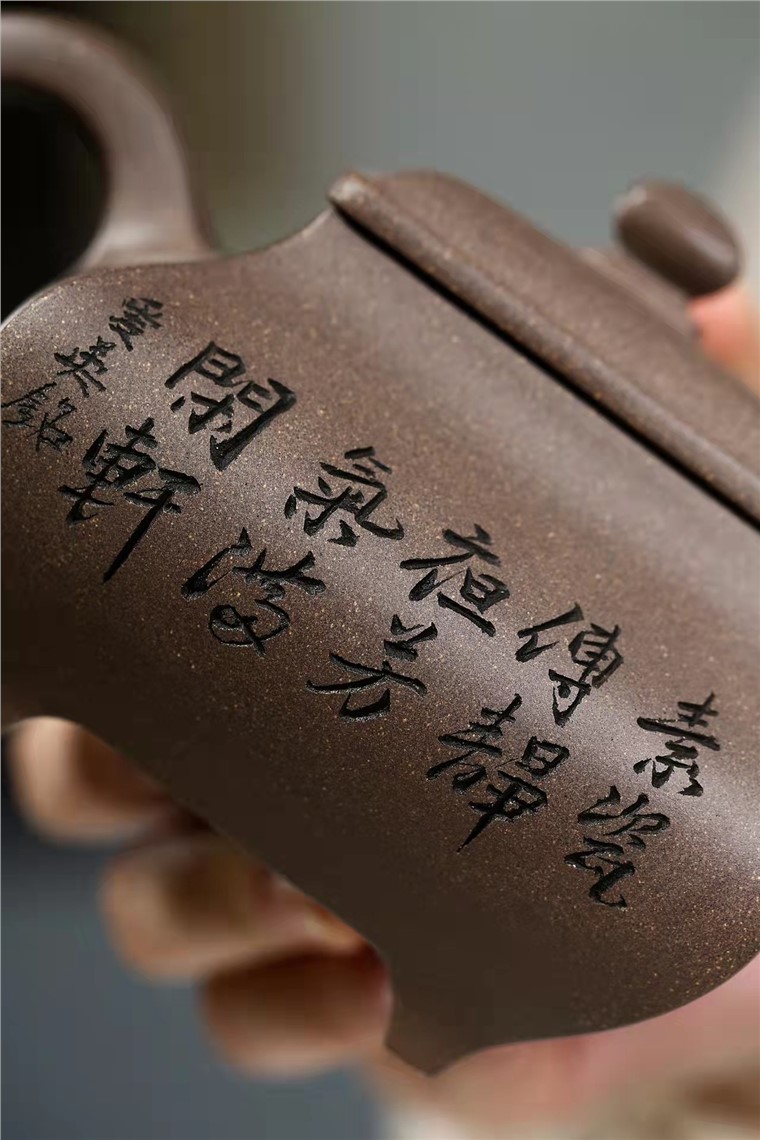 素瓷
傳靜
夜芳
氣滿
閑軒
銘